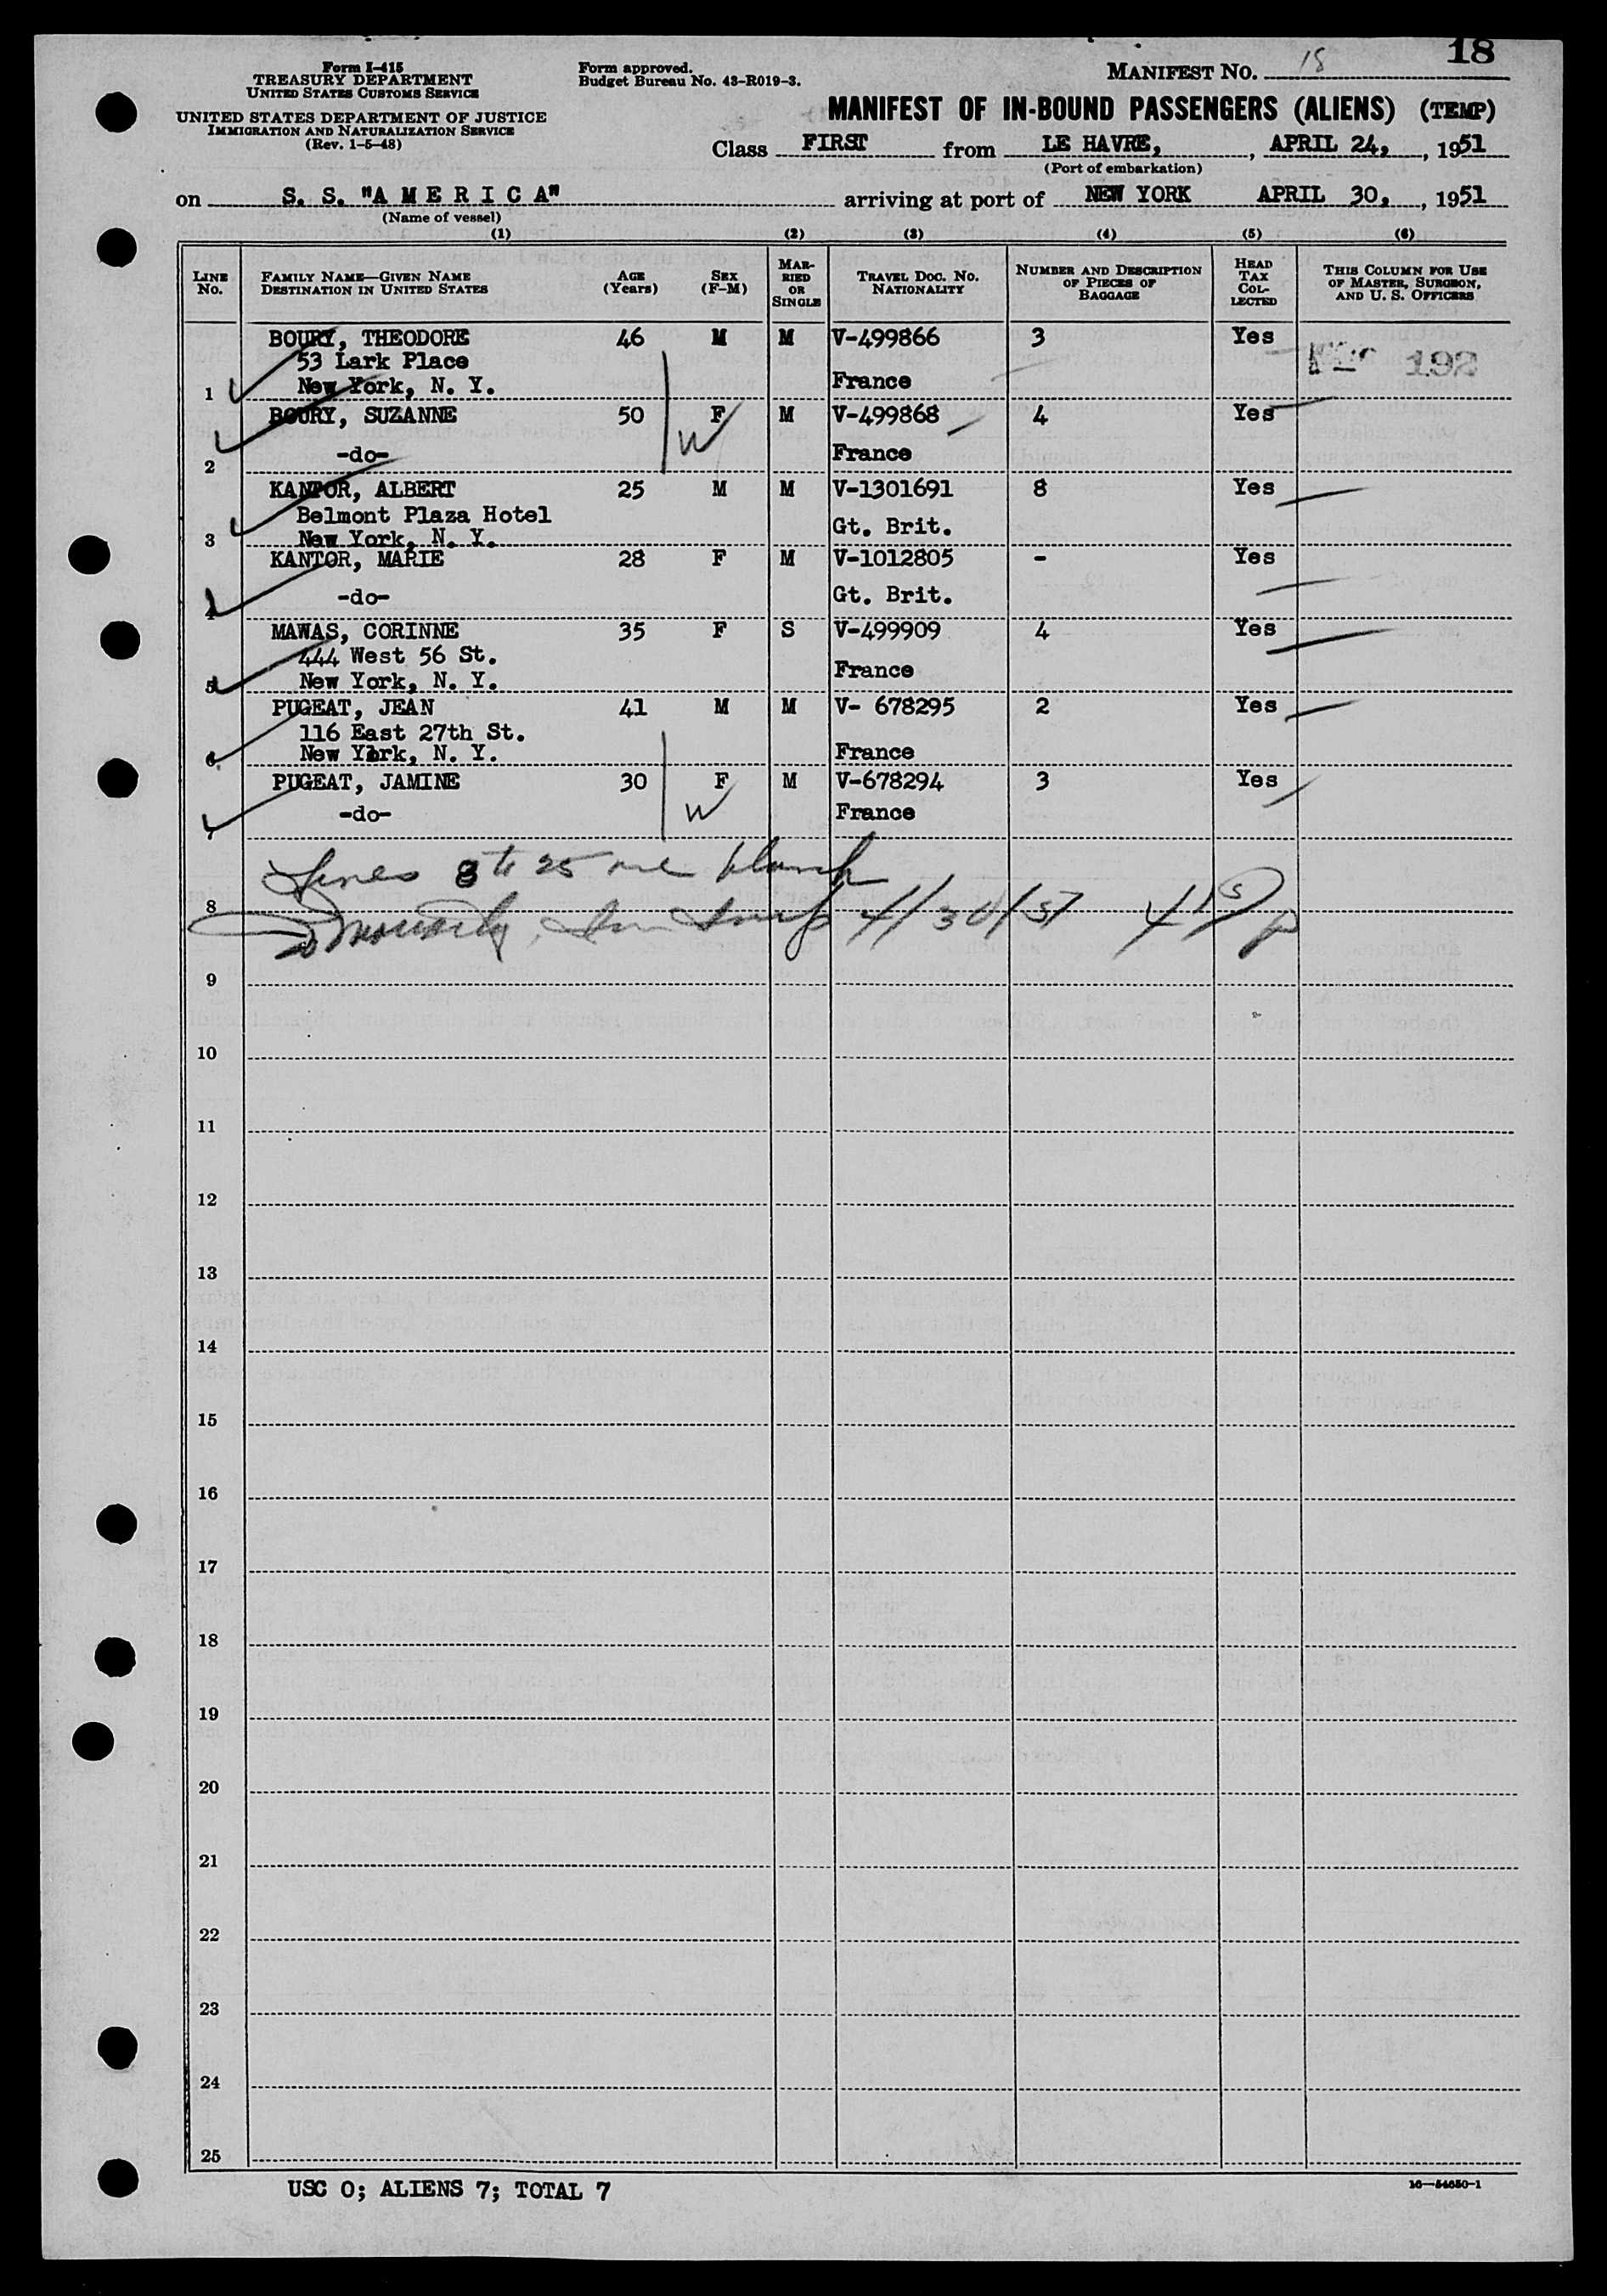 18
Form I-415
TREASURY DEPARTMENT
UNITED STATES CUSTOMS SERVICE
UNITED STATES DEPARTMENT OF JUSTICE
IMMIGRATION AND NATURALIZATION SERVICE
(Rev. 1-5-48)
Form approved.
Budget Bureau No. 43-R019-3.
MANIFEST NO. 18
MANIFEST OF IN-BOUND PASSENGERS (ALIENS) (TEMP)
Class FIRST from LE HAVRE, , APRIL 24, , 1951
(Port of embarkation)
on S. S. "A M E R I C A" arriving at port of NEW YORK APRIL 30, , 1951
(Name of vessel)
(1) (2) (3) (4) (5) (6)
LINE No. FAMILY NAME—GIVEN NAME DESTINATION IN UNITED STATES AGE (Years) SEX (F-M) MARRIED OR SINGLE TRAVEL DOC. NO. NATIONALITY NUMBER AND DESCRIPTION OF PIECES OF BAGGAGE HEAD TAX COLLECTED THIS COLUMN FOR USE OF MASTER, SURGEON, AND U. S. OFFICERS
BOURY, THEODORE 46 M M V-499866 3 Yes
53 Lark Place 192
1 New York, N. Y. France
BOURY, SUZANNE 50 F M V-499868 4 Yes
W
2 -do- France
KANTOR, ALBERT 25 M M V-1301691 8 Yes
Belmont Plaza Hotel Gt. Brit.
3 New York, N. Y.
KANTOR, MARIE 28 F M V-1012805 - Yes
4 -do- Gt. Brit.
MAWAS, CORINNE 35 F S V-499909 4 Yes
444 West 56 St. France
5 New York, N. Y.
PUGEAT, JEAN 41 M M V- 678295 2 Yes
116 East 27th St.
6 New York, N. Y. France
PUGEAT, JAMINE 30 F M V-678294 3 Yes
7 -do- W France
Lines 8 to 25 are blank
8
4/30/51
9
10
11
12
13
14
15
16
17
18
19
20
21
22
23
24
25
USC 0; ALIENS 7; TOTAL 7
16—54650-1